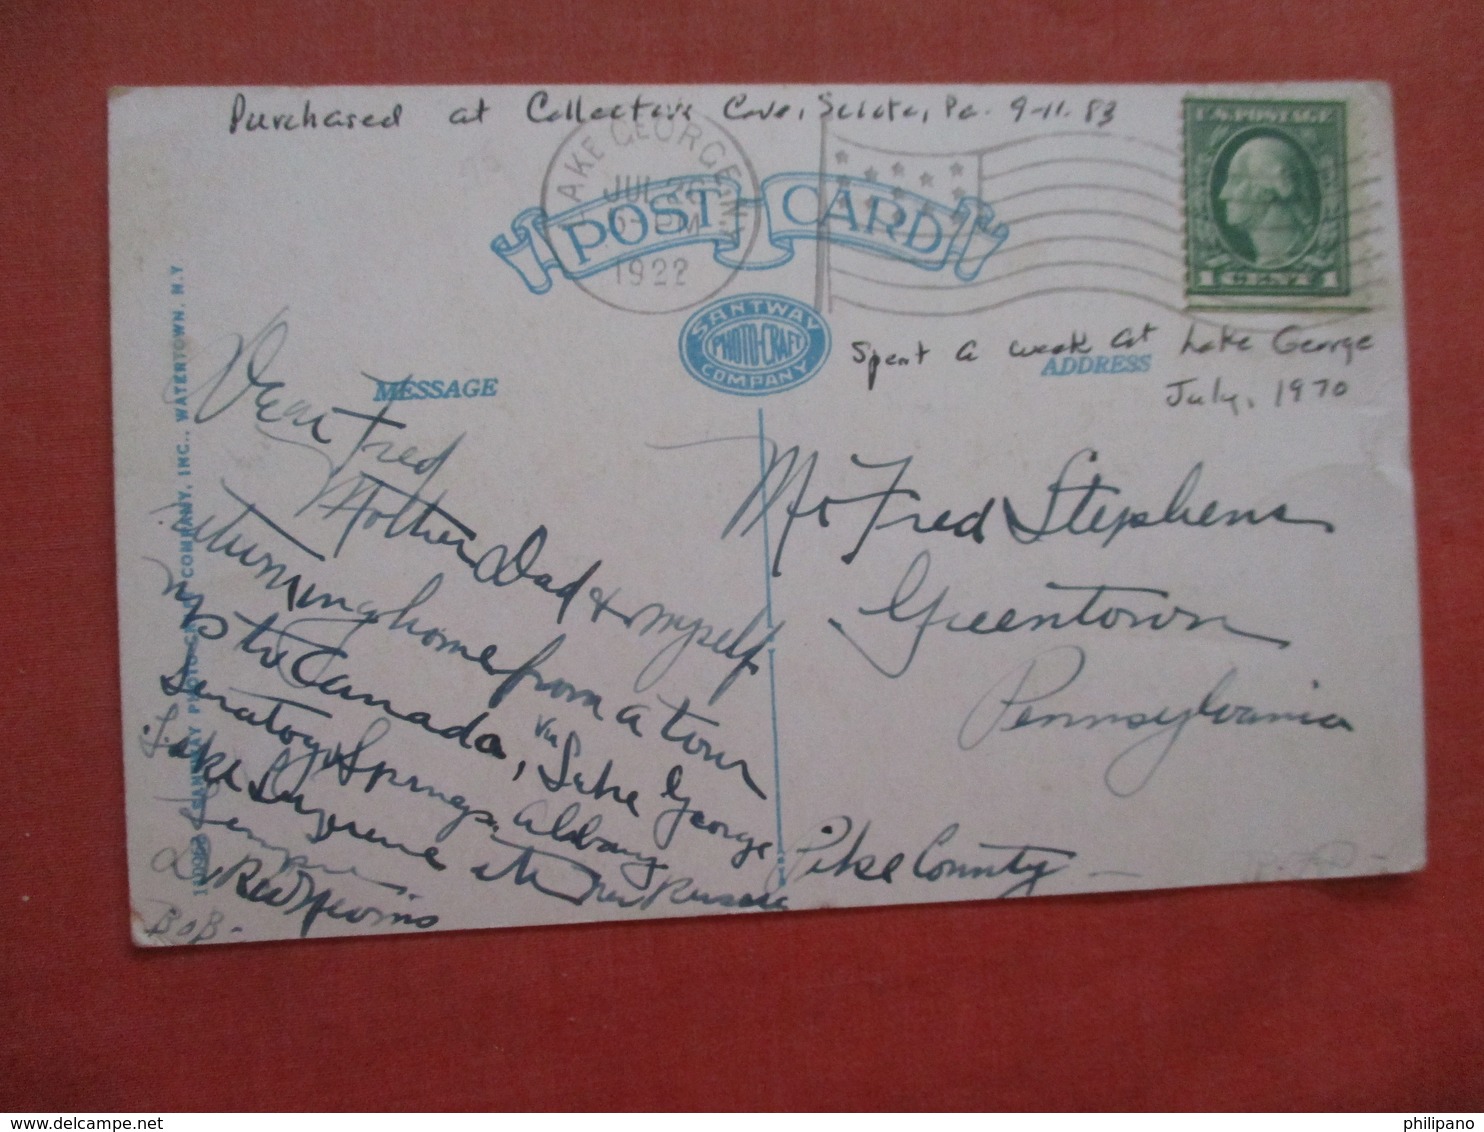 Purchased at Collectors Cove, Sciota, Pa. 9-11-83
LAKE GEORGE N.Y.
JUL
M
1922
POST-CARD
U.S. POSTAGE
1 CENT 1
SANTWAY
PHOTO-CRAFT
COMPANY
Spent a week at Lake George
July, 1970
MESSAGE
ADDRESS
SANTWAY PHOTO-CRAFT COMPANY, INC., WATERTOWN, N.Y.
Dear Fred
Mother Dad & myself
returning home from a tour
up to Canada, via Lake George
Saratoga Springs, Albany
Lake Luzerne
Bob-
Mr Fred Stephens
Greentown
Pennsylvania
Pike County
www.delcampe.net
philipano